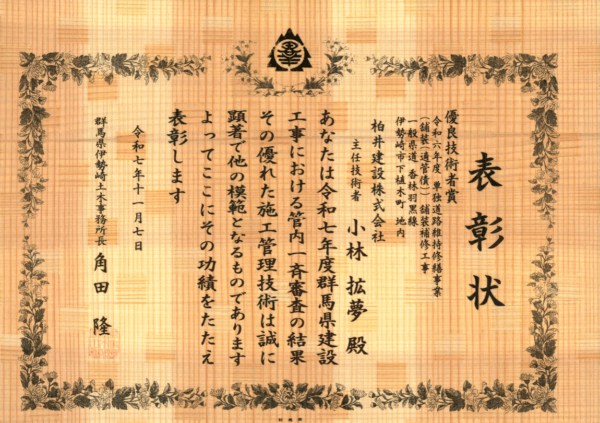 表彰状
優良技術者賞
令和六年度 単独道路維持修繕事業
(舗装(適管債)) 舗装補修工事
一般県道 香林羽黒線
伊勢崎市下植木町 地内
柏井建設株式会社
主任技術者 小林 拡夢 殿
あなたは令和七年度群馬県建設
工事における管内一斉審査の結果
その優れた施工管理技術は誠に
顕著で他の模範となるものであります
よってここにその功績をたたえ
表彰します
令和七年十一月七日
群馬県伊勢崎土木事務所長 角田 隆